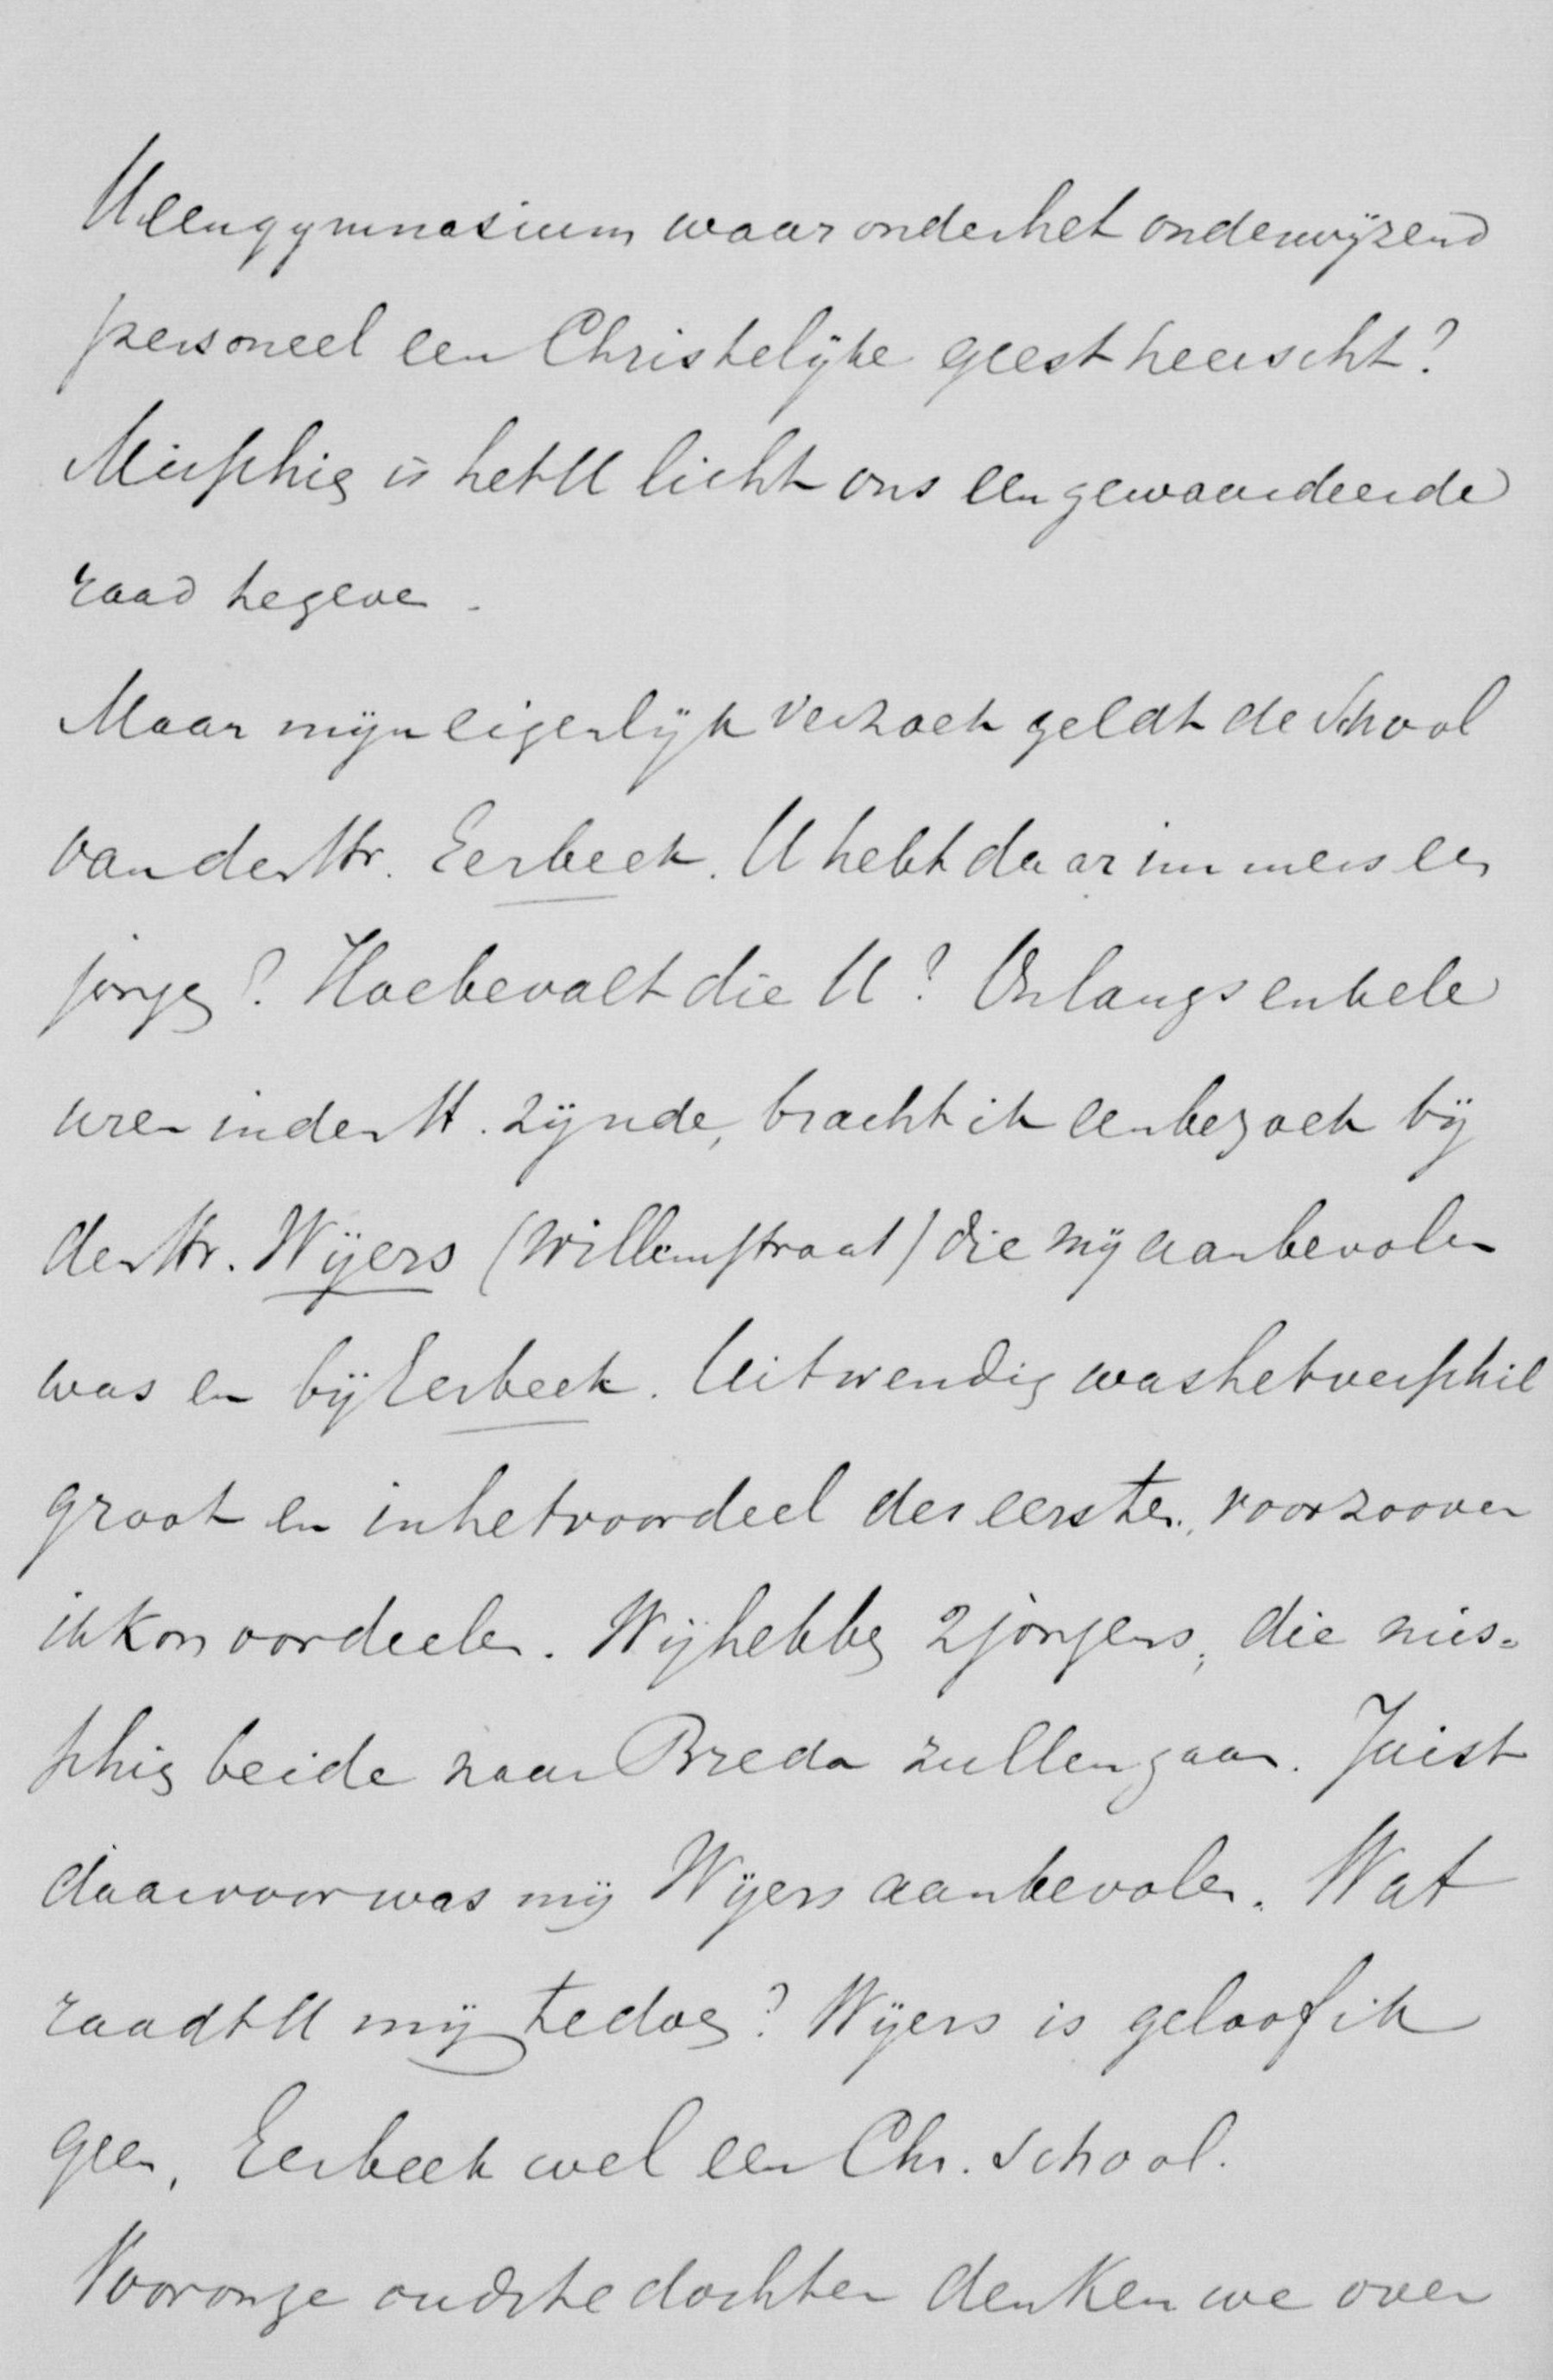 U een gymnasium waar onder het onderwijzend
personeel een Christelijke geest heerscht?
Misschien is het U licht ons een gewaardeerde
raad te geven.
Maar mijn eigenlijk verzoek geldt de School
van den Hr. Eerbeek. U hebt daar immers een
jongen? Hoe bevalt die U? Onlangs enkele
uren in den H. zijnde, bracht ik een bezoek bij
den Hr. Wijers (Willemstraat) die mij aanbevolen
was en bij Eerbeek. Uitwendig was het verschil
groot en in het voordeel des eersten, voor zoover
ik kon oordeelen. Wij hebben 2 jongens, die mis-
schien beide naar Breda zullen gaan. Juist
daarvoor was mij Wijers aanbevolen. Wat
raadt U mij te doen? Wijers is geloof ik
geen, Eerbeek wel een Chr. School.
Voor onze oudste dochter denken we over